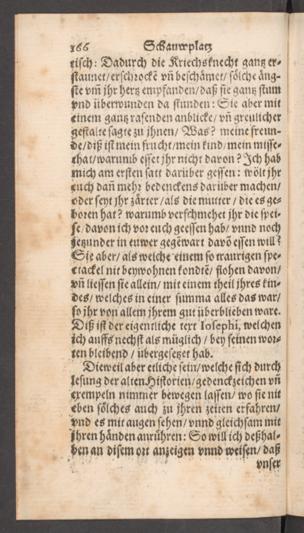 166 Schauwplatz
tisch: Dadurch die Kriechsknecht gantz er-
staunet/erschrockẽ vñ beschämet/sölche äng-
ste vm̃ jhr hertz empfanden/daß sie gantz stum
vnd überwunden da stunden: Sie aber mit
einem gantz rasenden anblicke/ vñ greulicher
gestalte sagte zu jhnen/ Was? meine freun-
de/diß ist mein frucht/mein kind/mein misse-
that/warumb esset jhr nicht davon? Jch hab
mich am ersten satt darüber gessen: wölt jhr
euch dañ mehr bedenckens darüber machen/
oder seyt jhr zärter/als die mutter/die es ge-
boren hat? warumb verschmehet jhr die spei-
se/davon ich vor euch geessen hab/vnnd noch
jezunder in euwer gegẽwart davõ essen will?
Sie aber/als welche einem so traurigen spe-
ctackel nit beywohnen kondtẽ/ flohen davon/
vñ liessen sie allein/ mit einem theil jhres kin-
des/ welches in einer summa alles das war/
so jhr von allem jhrem gut überblieben ware.
Diß ist der eigentliche text Iosephi, welchen
ich auffs nechst als müglich/ bey seinen wor-
ten bleibend/ übergesetzt hab.
Dieweil aber etliche sein/welche sich durch
lesung der alten Historien/gedenckzeichen vñ
exempeln nimmer bewegen lassen/ wo sie nit
eben sölches auch zu jhren zeiten erfahren/
vnd es mit augen sehen/ vnnd gleichsam mit
jhren händen anrühren: So will ich deßhal-
ben an disem ort anzeigen vnnd weisen/ daß
vnser